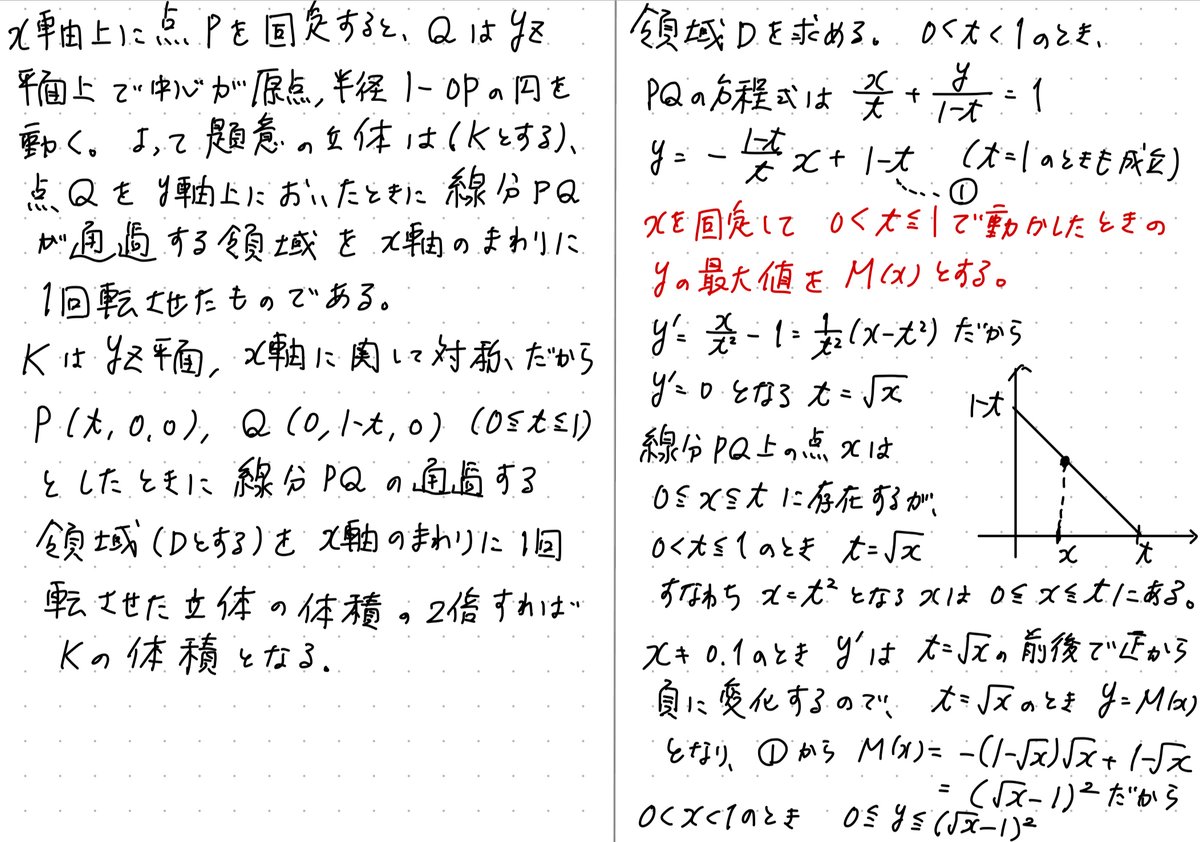 x軸上に点Pを固定すると、Qはyz
平面上で中心が原点,半径1-OPの円を
動く。よって題意の立体は(Kとする)、
点Qをy軸上においたときに線分PQ
が通過する領域をx軸のまわりに
1回転させたものである。
Kはyz平面,x軸に関して対称、だから
P(t,0,0), Q(0,1-t,0) (0≦t≦1)
としたときに線分PQの通過する
領域(Dとする)をx軸のまわりに1回
転させた立体の体積の2倍すれば
Kの体積となる.
領域Dを求める。 0<t<1のとき、
PQの方程式は x/t + y/(1-t) = 1
y = -(1-t)/t x + 1-t (t=1のときも成立)
①
xを固定して 0<t≦1で動かしたときの
yの最大値をM(x)とする。
y' = x/t² - 1 = 1/t² (x-t²) だから
y'=0 となる t=√x
1-t
線分PQ上の点xは
0≦x≦tに存在するが、
0<t≦1のとき t=√x
x t
すなわち x=t²となるxは 0≦x≦tにある。
x≠0.1のとき y'は t=√xの前後で正から
負に変化するので、 t=√xのとき y=M(x)
となり、①から M(x)= -(1-√x)√x + 1-√x
= (√x-1)² だから
0<x<1のとき 0≦y≦(√x-1)²